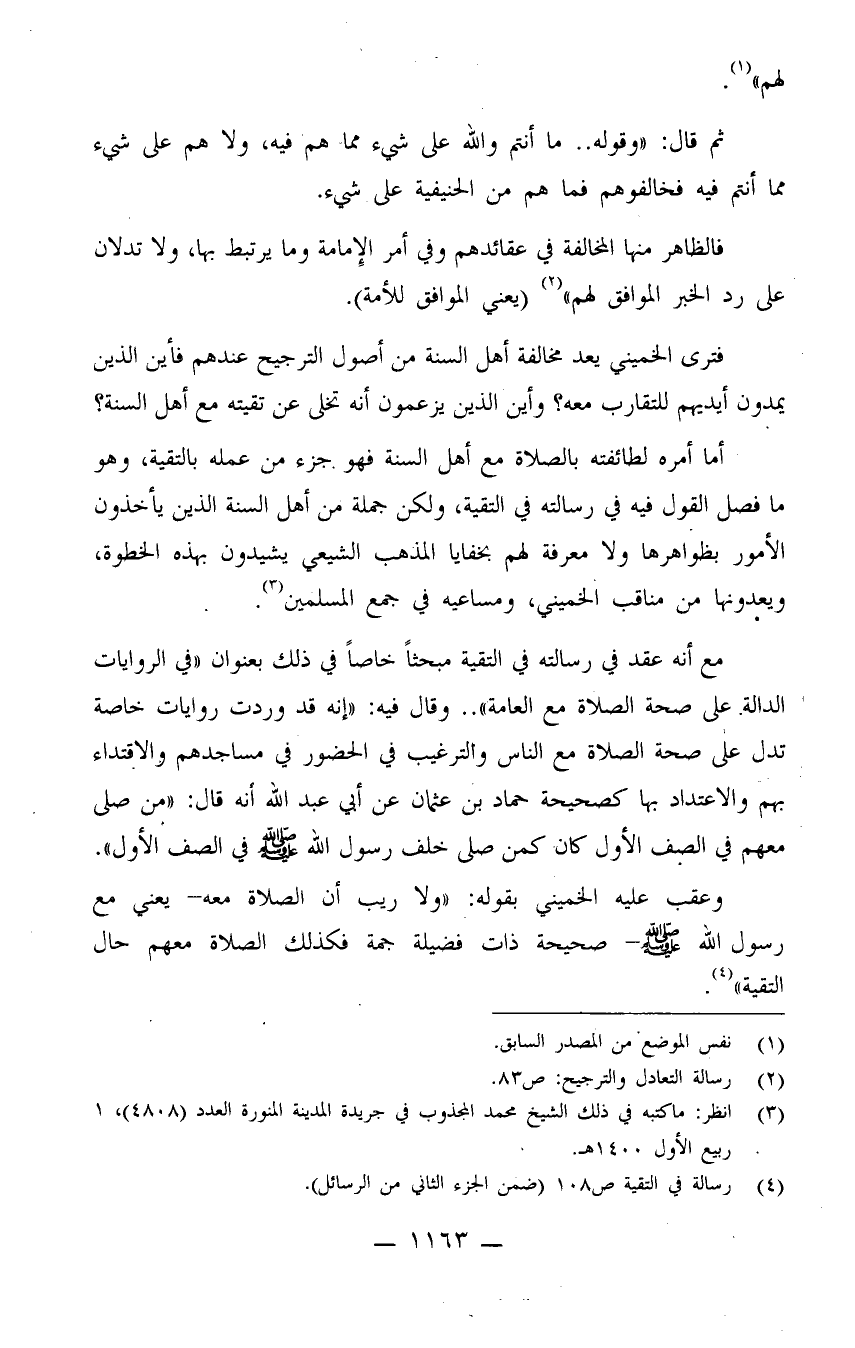 لهم»(١).
ثم قال: «وقوله.. ما أنتم والله على شيء مما هم فيه، ولا هم على شيء
مما أنتم فيه فخالفوهم فما هم من الحنيفية على شيء.
فالظاهر منها المخالفة في عقائدهم وفي أمر الإمامة وما يرتبط بها، ولا تدلان
على رد الخبر الموافق لهم»(٢) (يعني الموافق للأمة).
فترى الخميني يعد مخالفة أهل السنة من أصول الترجيح عندهم فأين الذين
يمدون أيديهم للتقارب معه؟ وأين الذين يزعمون أنه تخلى عن تقيته مع أهل السنة؟
أما أمره لطائفته بالصلاة مع أهل السنة فهو جزء من عمله بالتقية، وهو
ما فصل القول فيه في رسالته في التقية، ولكن جملة من أهل السنة الذين يأخذون
الأمور بظواهرها ولا معرفة لهم بخفايا المذهب الشيعي يشيدون بهذه الخطوة،
ويعدونها من مناقب الخميني، ومساعيه في جمع المسلمين(٣).
مع أنه عقد في رسالته في التقية مبحثاً خاصاً في ذلك بعنوان «في الروايات
الدالة على صحة الصلاة مع العامة».. وقال فيه: «إنه قد وردت روايات خاصة
تدل على صحة الصلاة مع الناس والترغيب في الحضور في مساجدهم والاقتداء
بهم والاعتداد بها كصحيحة حماد بن عثمان عن أبي عبد الله أنه قال: «من صلى
معهم في الصف الأول كان كمن صلى خلف رسول الله ﷺ في الصف الأول».
وعقب عليه الخميني بقوله: «ولا ريب أن الصلاة معه– يعني مع
رسول الله ﷺ– صحيحة ذات فضيلة جمة فكذلك الصلاة معهم حال
التقية»(٤).
(١) نفس الموضع من المصدر السابق.
(٢) رسالة التعادل والترجيح: ص٨٣.
(٣) انظر: ماكتبه في ذلك الشيخ محمد المجذوب في جريدة المدينة المنورة العدد (٤٨٠٨)، ١
ربيع الأول ١٤٠٠هـ.
(٤) رسالة في التقية ص١٠٨ (ضمن الجزء الثاني من الرسائل).
— ١١٦٣ —